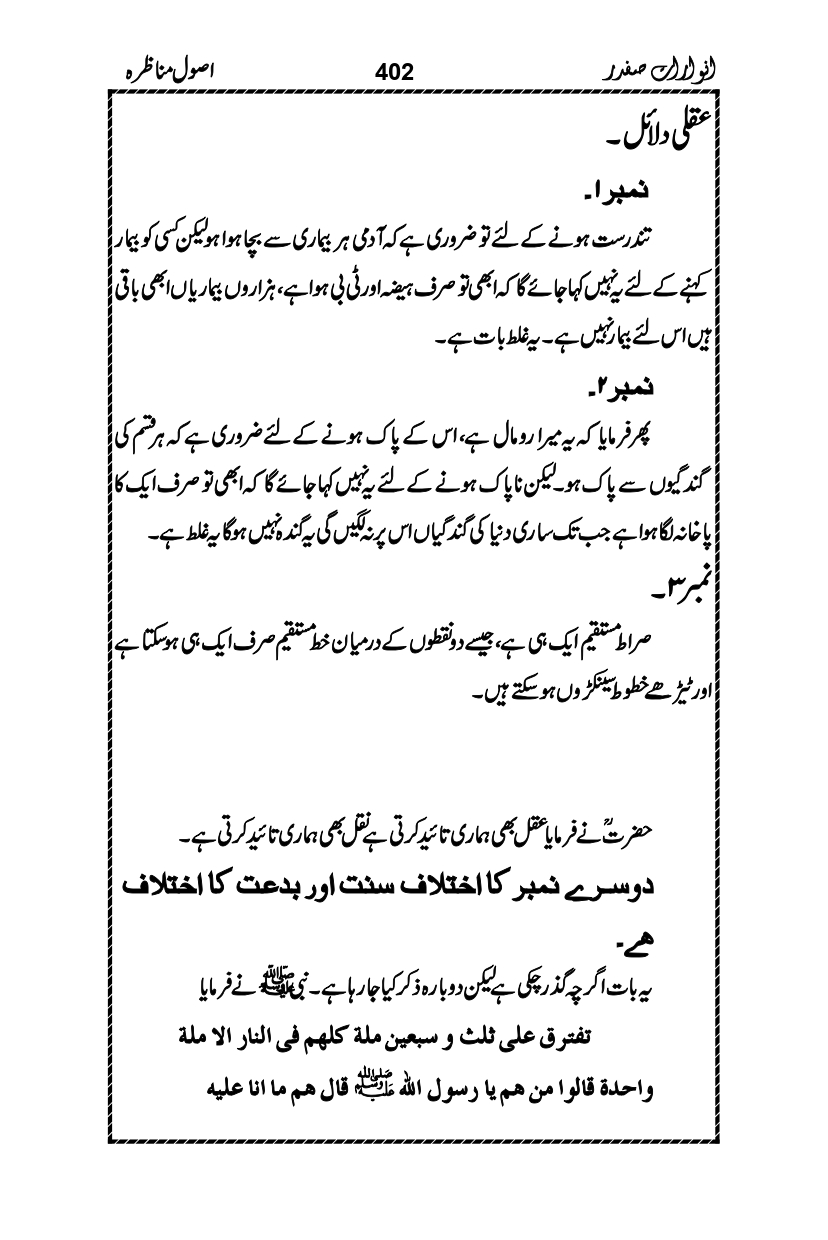 انوارات صفدر 402 اصول مناظرہ
عقلی دلائل۔
نمبر ۱۔
تندرست ہونے کے لئے تو ضروری ہے کہ آدمی ہر بیماری سے بچا ہوا ہو لیکن کسی کو بیمار
کہنے کے لئے یہ نہیں کہا جائے گا کہ ابھی تو صرف ہیضہ اور ٹی بی ہوا ہے، ہزاروں بیماریاں ابھی باقی
ہیں اس لئے بیمار نہیں ہے۔ یہ غلط بات ہے۔
نمبر ۲۔
پھر فرمایا کہ یہ میرا رومال ہے، اس کے پاک ہونے کے لئے ضروری ہے کہ ہر قسم کی
گندگیوں سے پاک ہو۔ لیکن ناپاک ہونے کے لئے یہ نہیں کہا جائے گا کہ ابھی تو صرف ایک کا
پاخانہ لگا ہوا ہے جب تک ساری دنیا کی گندگیاں اس پر نہ لگیں گی یہ گندہ نہیں ہوگا یہ غلط ہے۔
نمبر ۳۔
صراط مستقیم ایک ہی ہے، جیسے دو نقطوں کے درمیان خط مستقیم صرف ایک ہی ہو سکتا ہے
اور ٹیڑھے خطوط سینکڑوں ہو سکتے ہیں۔
حضرتؒ نے فرمایا عقل بھی ہماری تائید کرتی ہے نقل بھی ہماری تائید کرتی ہے۔
دوسرے نمبر کا اختلاف سنت اور بدعت کا اختلاف
ھے۔
یہ بات اگرچہ گذر چکی ہے لیکن دوبارہ ذکر کیا جا رہا ہے۔ نبی ﷺ نے فرمایا
تفترق علی ثلث و سبعین ملة کلهم فی النار الا ملة
واحدة قالوا من هم یا رسول الله ﷺ قال هم ما انا علیه